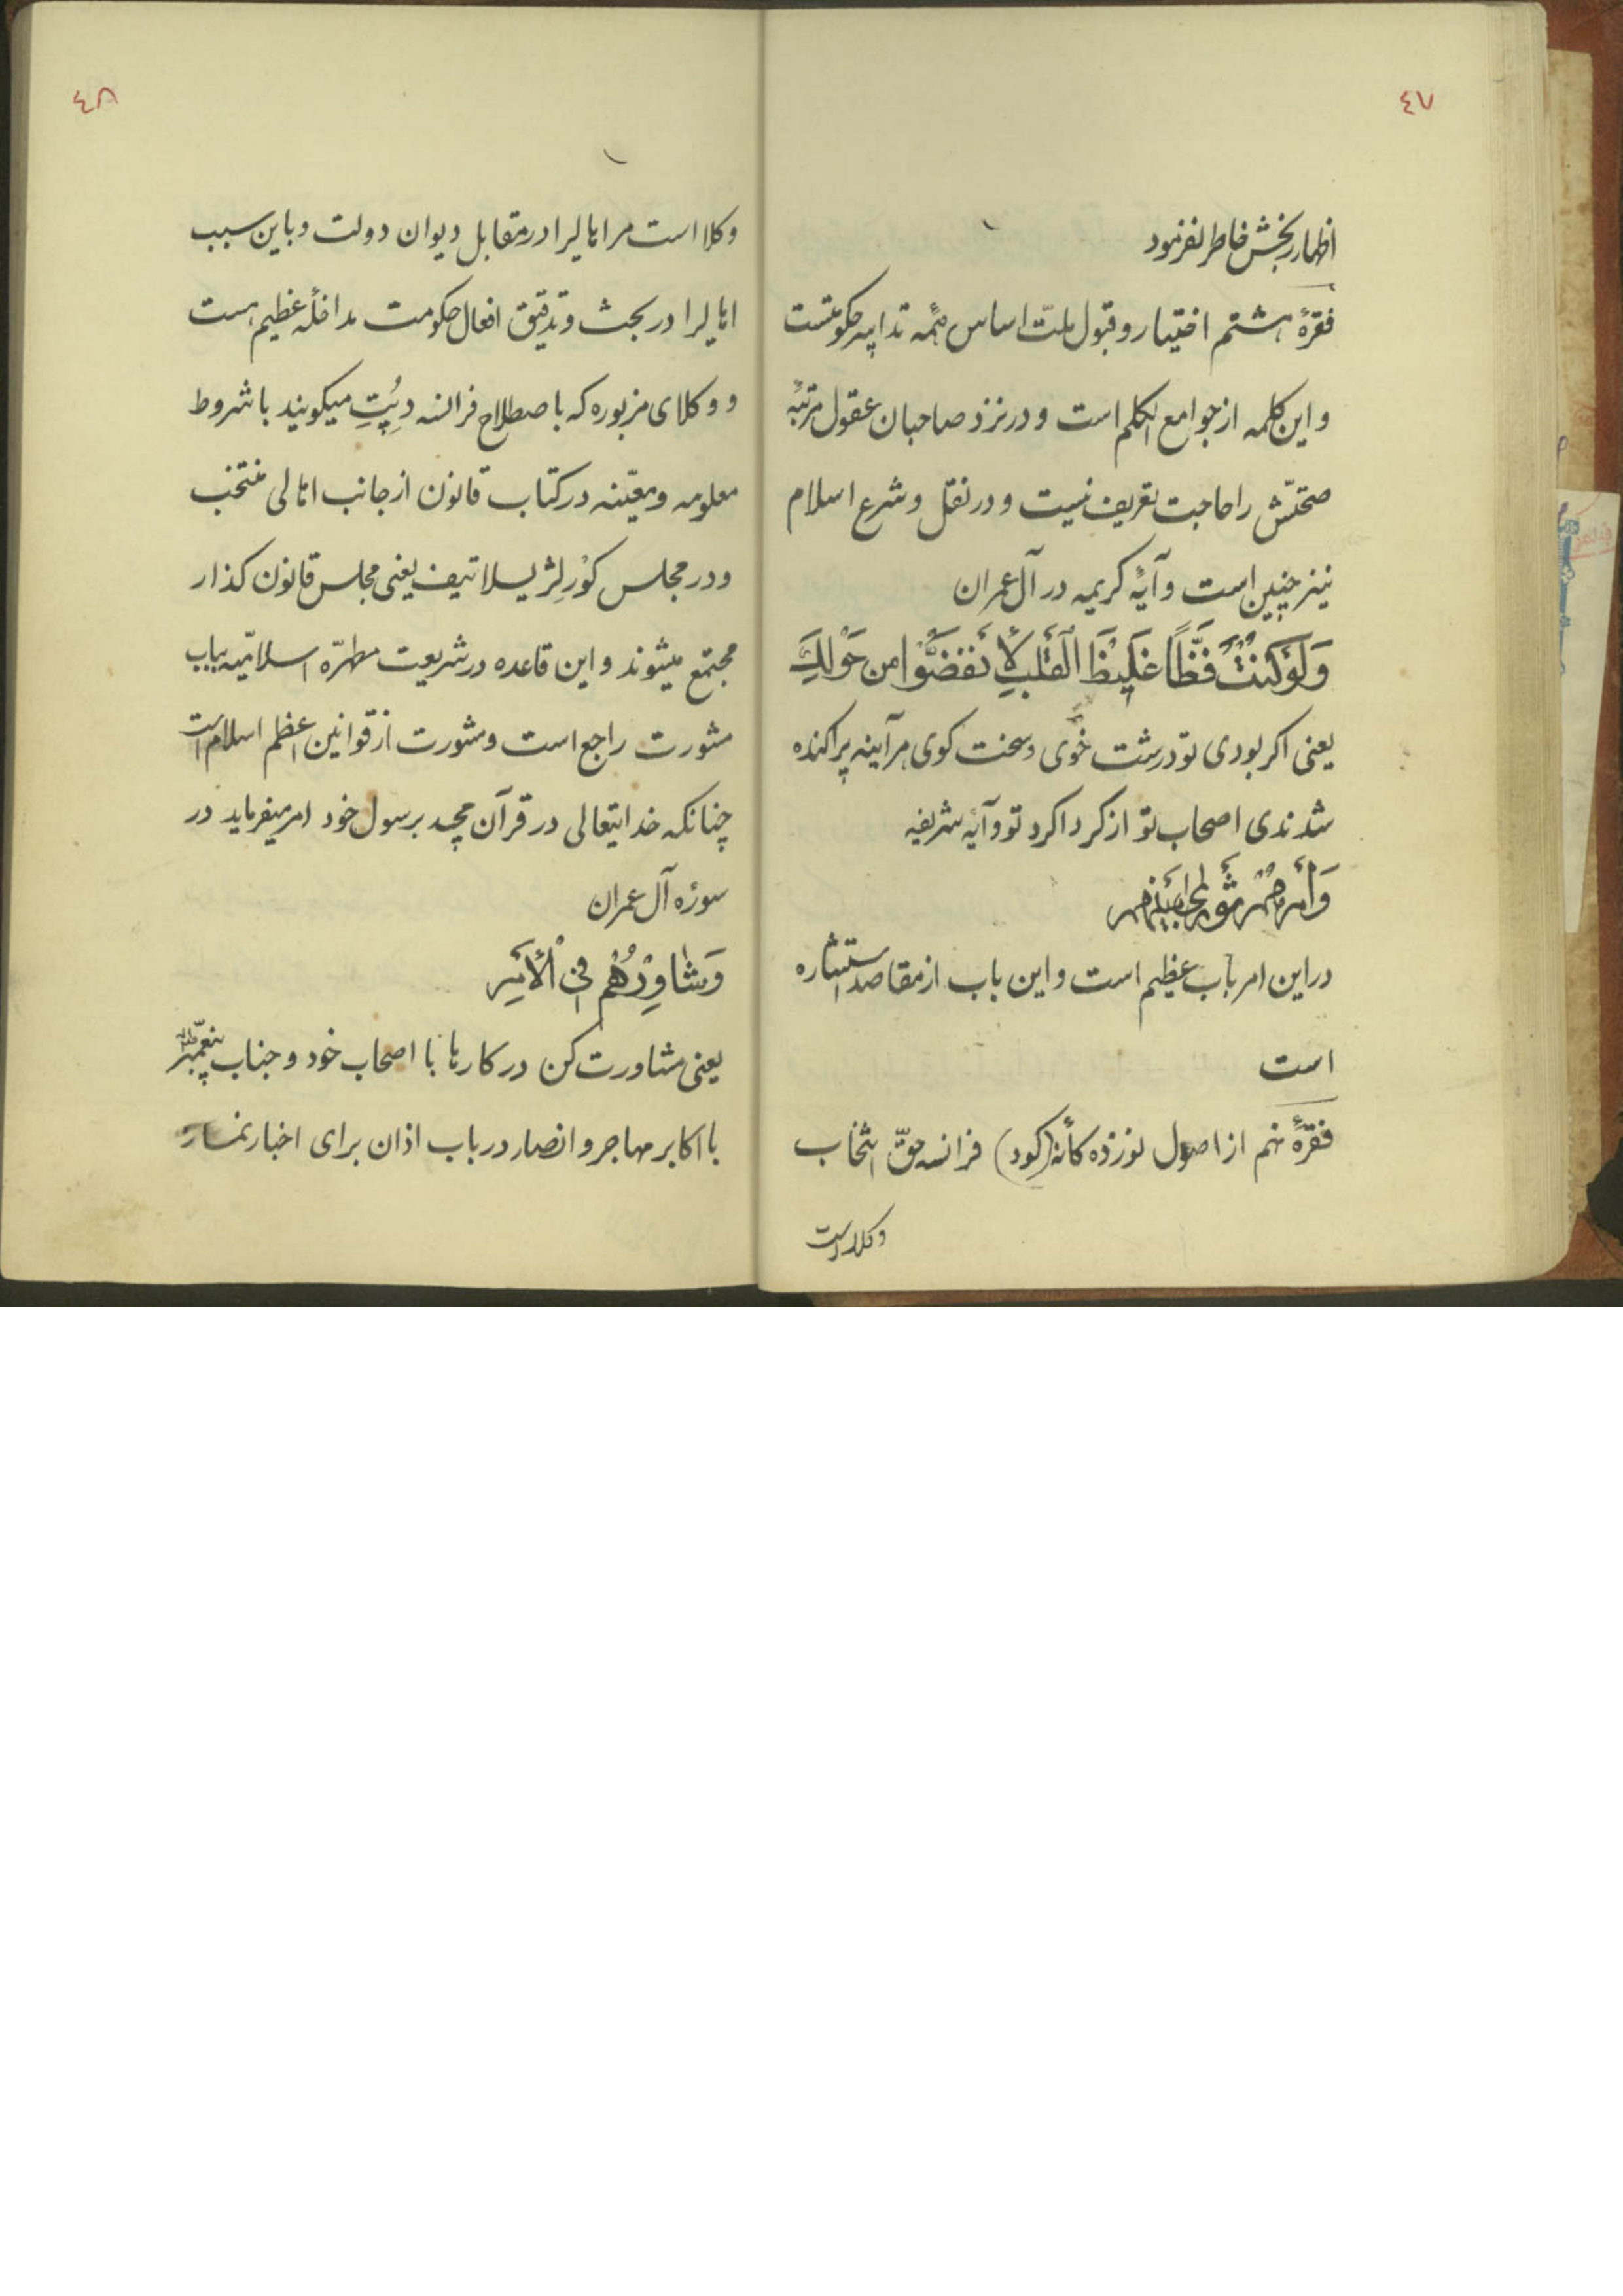 ٤٧
اظهار رنجش خاطر نفرمود
فقرهٔ هشتم اختیار و قبول ملّت اساس همهٔ تدابیر حکومتست
و این کلمه از جوامع الکلم است و در نزد صاحبان عقول مرتبهٔ
صحتّش را حاجت تعریف نیست و در نقل و شرع اسلام
نیز چنین است و آیهٔ کریمه در آل عمران
وَلَوْ کُنْتَ فَظّاً غَلیظَ الْقَلْبِ لَأنْفَضُّوا مِن حَوْلِكَ
یعنی اکر بودی تو درشت خُوی و سخت کوی هر آینه پراکنده
شدندی اصحاب تو از کرداکرد تو و آیه شریفه
وَأَمْرُهُمْ شُورىٰ بَيْنَهُمْ
در این امر باب عظیم است و این باب از مقاصد استشاره
است
فقرهٔ نهم از اصول نوزده کانهٔ (کود) فرانسه حقّ انتخاب
وکلا است
٤٨
وکلا است مر اهالیرا در مقابل دیوان دولت و باین سبب
اهالیرا در بحث و تدقیق افعال حکومت مداخلهٔ عظیم هست
و وکلای مزبوره که باصطلاح فرانسه دِپُتِ میکویند با شروط
معلومه و معیّنه در کتاب قانون از جانب اهالی منتخب
و در مجلس کُوْرلِژیسلاتیف یعنی مجلس قانون کذار
مجتمع میشوند و این قاعده در شریعت مطهرّه اسلامیّه بباب
مشورت راجع است و مشورت از قوانین اعظم اسلام است
چنانکه خدایتعالی در قرآن مجید برسول خود امر میفرماید در
سورهٔ آل عمران
وَشٰاوِرْهُمْ فِی الْأَمْرِ
یعنی مشاورت کن در کارها با اصحاب خود و جناب پیغمبر
با اکابر مهاجر و انصار در باب اذان برای اخبار نماز